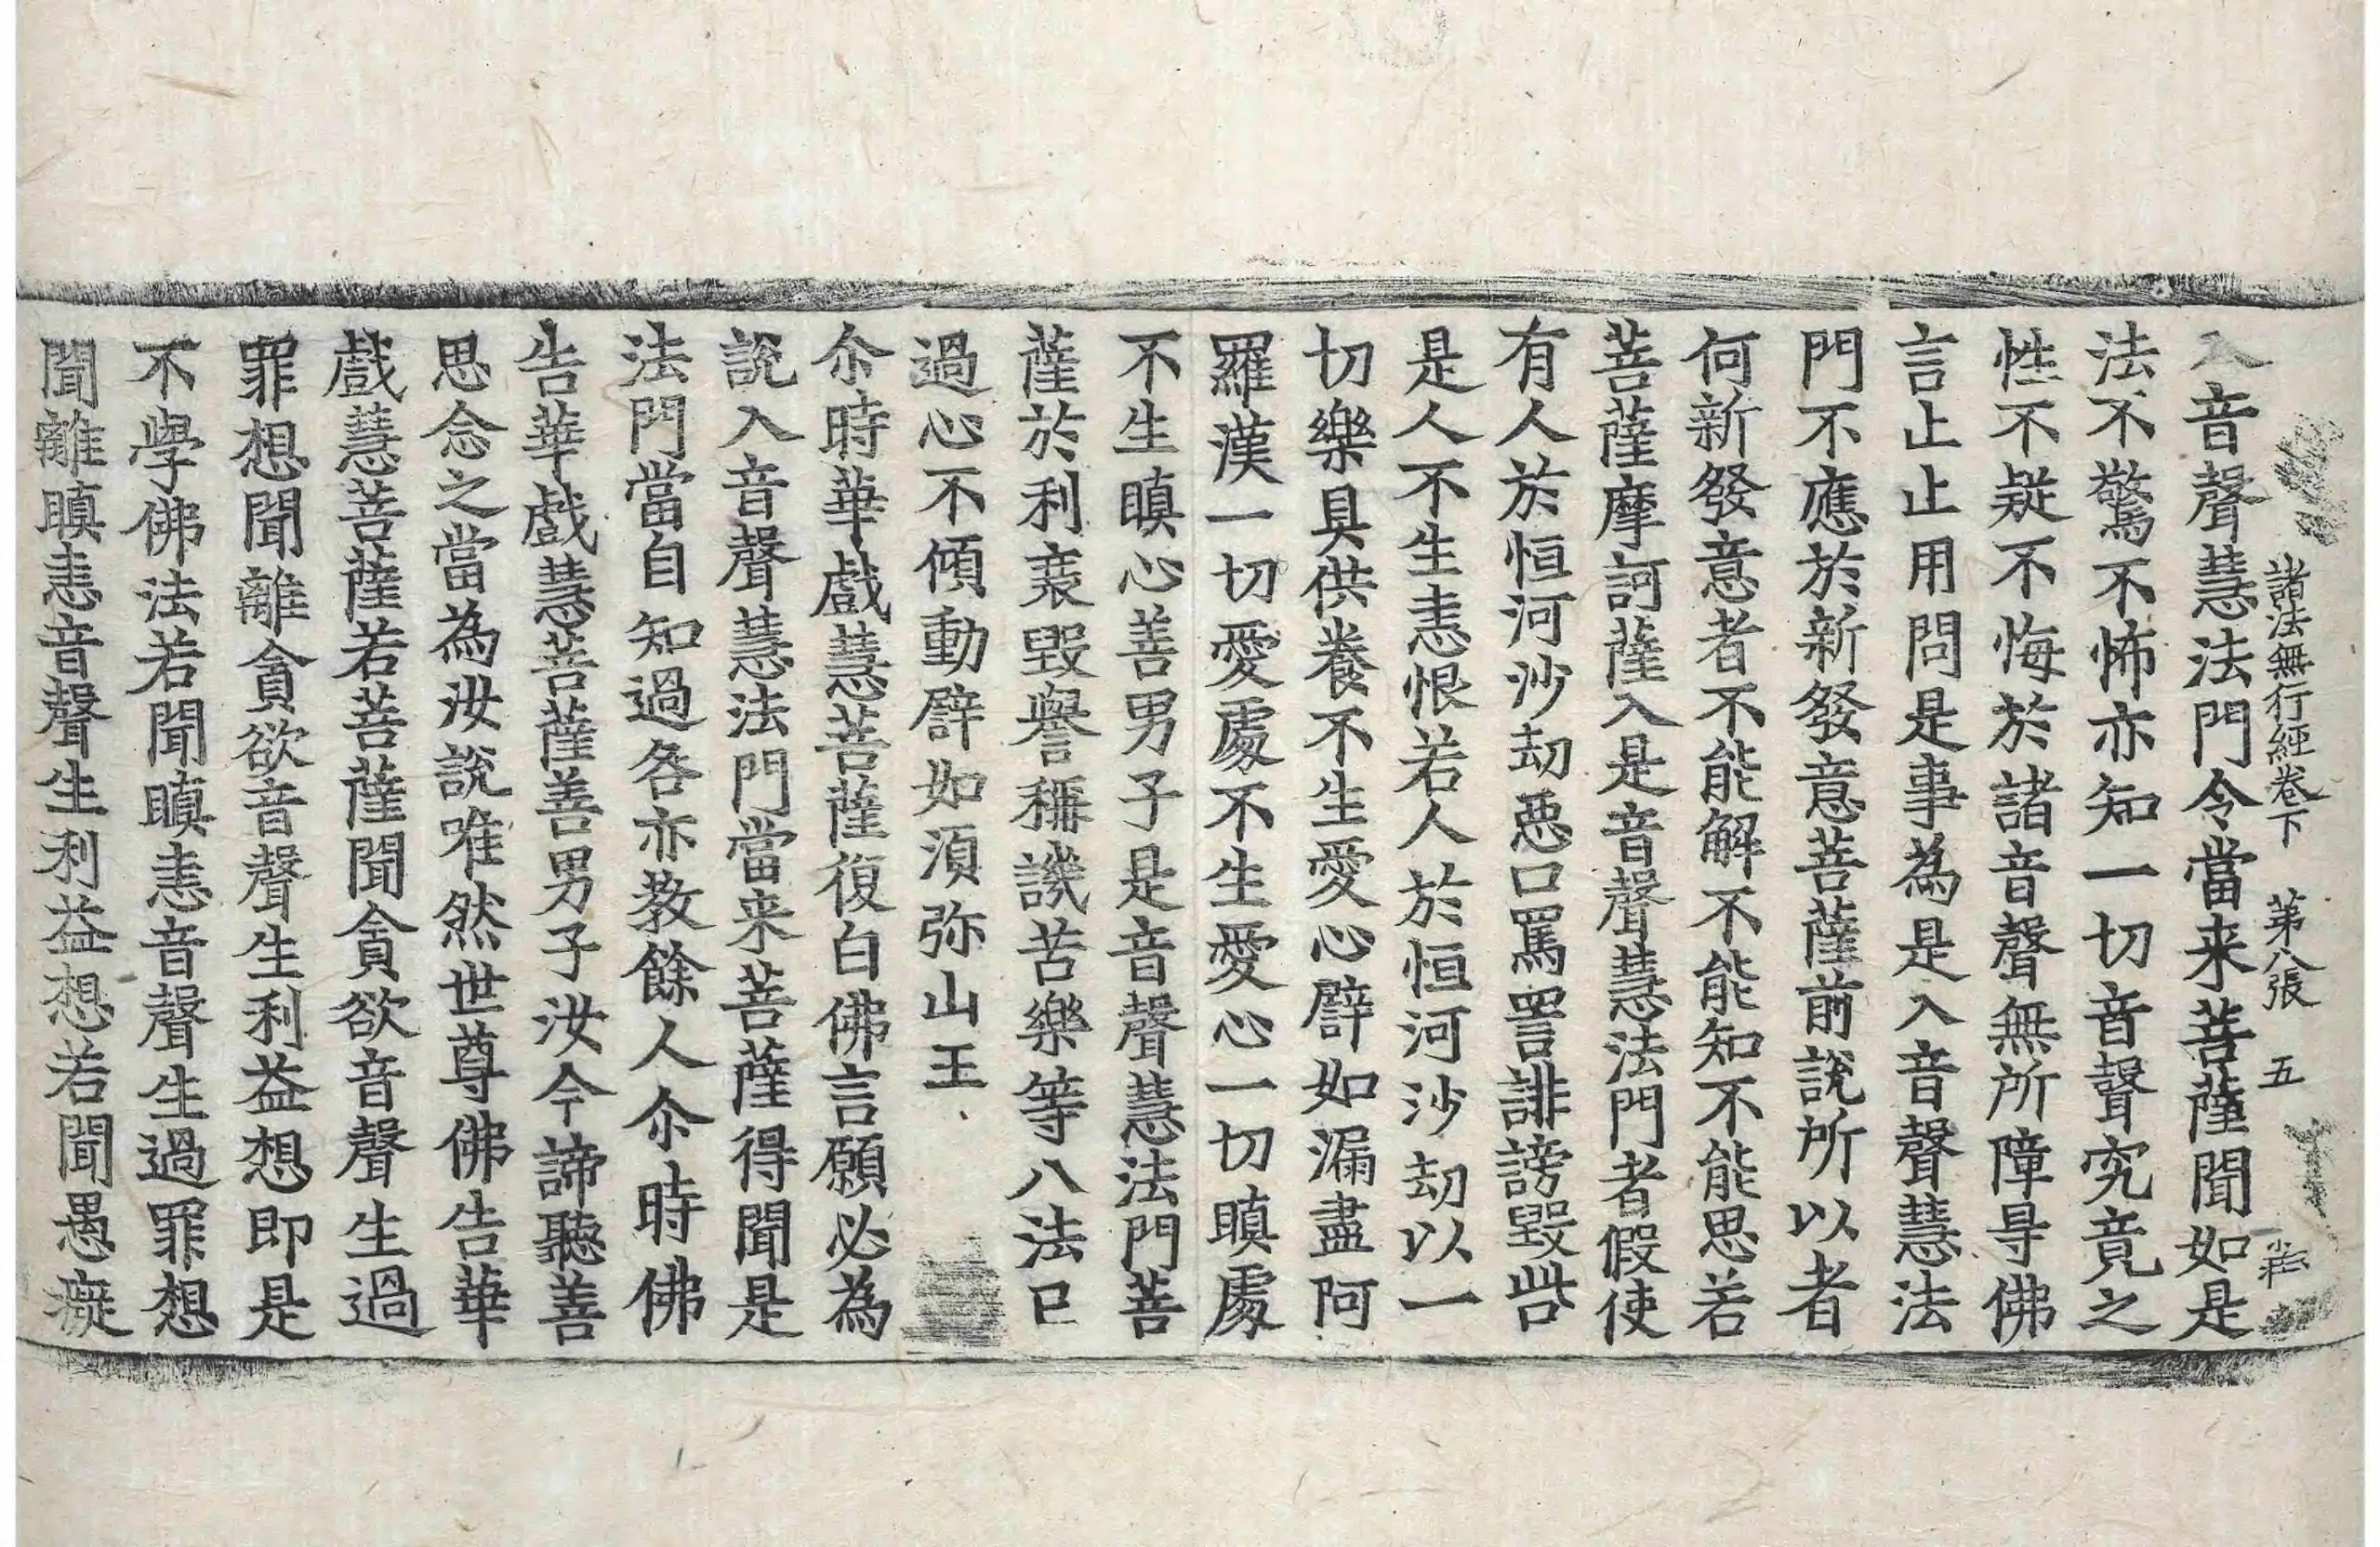 諸法無行經卷下 第八張 五
入音聲慧法門令當来菩薩聞如是
法不驚不怖亦知一切音聲究竟之
性不疑不悔於諸音聲無所障㝵佛
言止止用問是事為是入音聲慧法
門不應於新發意菩薩前說所以者
何新發意者不能解不能知不能思若
菩薩摩訶薩入是音聲慧法門者假使
有人於恒河沙劫惡口罵詈誹謗毀呰
是人不生恚恨若人於恒河沙劫以一
切樂具供養不生愛心譬如漏盡阿
羅漢一切愛處不生愛心一切瞋處
不生瞋心善男子是音聲慧法門菩
薩於利衰毀譽稱譏苦樂等八法已
過心不傾動譬如須弥山王
尒時華戲慧菩薩復白佛言願必為
說入音聲慧法門當来菩薩得聞是
法門當自知過咎亦教餘人尒時佛
告華戲慧菩薩善男子汝今諦聽善
思念之當為汝說唯然世尊佛告華
戲慧菩薩若菩薩聞貪欲音聲生過
罪想聞離貪欲音聲生利益想即是
不學佛法若聞瞋恚音聲生過罪想
聞離瞋恚音聲生利益想若聞愚癡